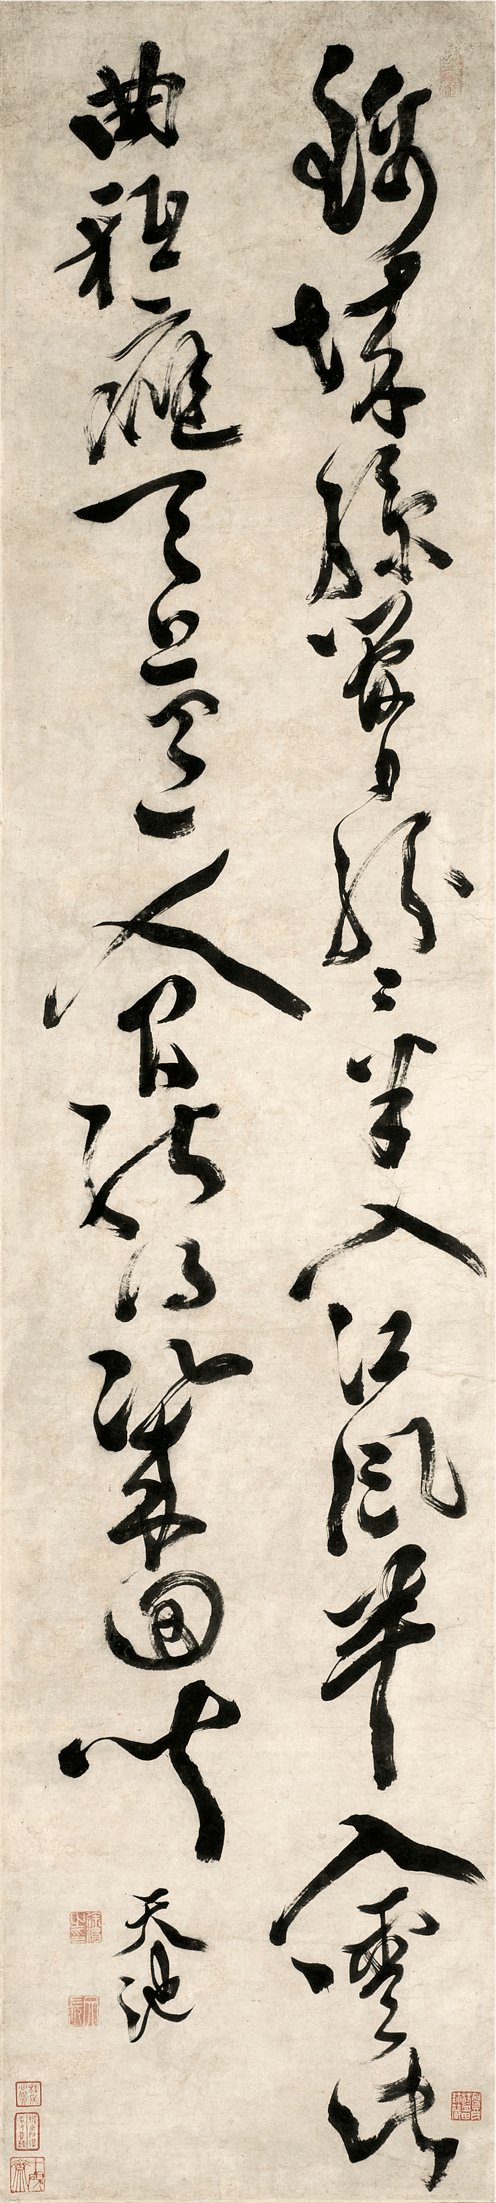 錦城絲管日紛〻半入江風半入雲此
曲祗應天上有人間能得幾回聞
天池